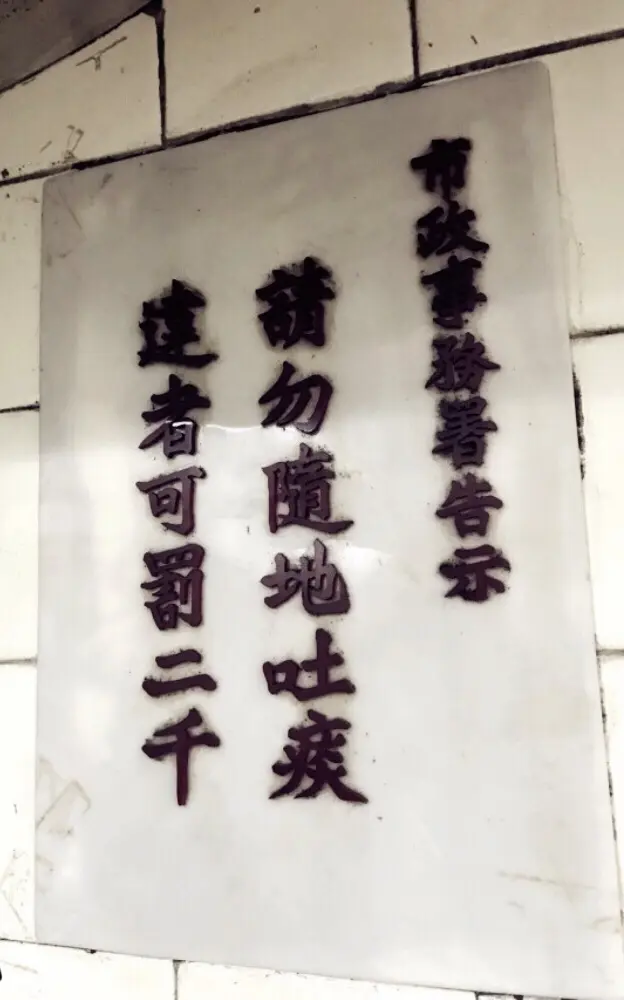 市政事務署告示
請勿隨地吐痰
違者可罰二千